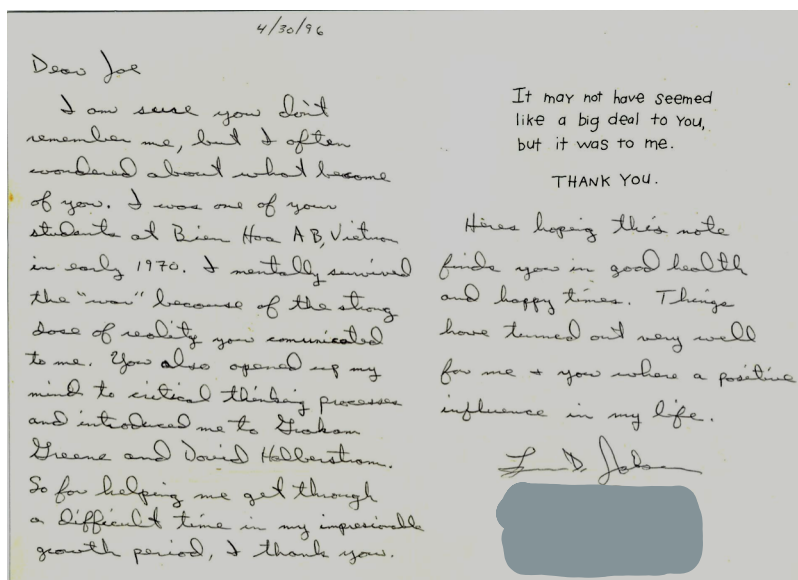 4/30/96
Dear Joe
I am sure you don't
remember me, but I often
wondered about what become
of you. I was one of your
students at Bien Hoa AB, Vietnam
in early 1970. I mentally survived
the "war" because of the strong
dose of reality you comunicated
to me. You also opened up my
mind to critical thinking processes
and introduced me to Graham
Greene and David Halberstram.
So for helping me get through
a difficult time in my impresionable
growth period, I thank you.
It may not have seemed
like a big deal to you,
but it was to me.
THANK YOU.
Heres hoping this note
finds you in good health
and happy times. Things
have turned out very well
for me + you where a positive
influence in my life.
D.